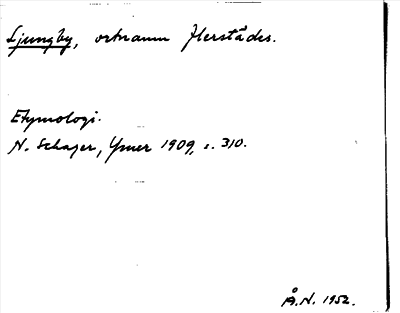 Ljungby, ortnamn flerstädes.
Etymologi.
N. Schager, Ymer 1909, s. 310.
Å.N. 1952.